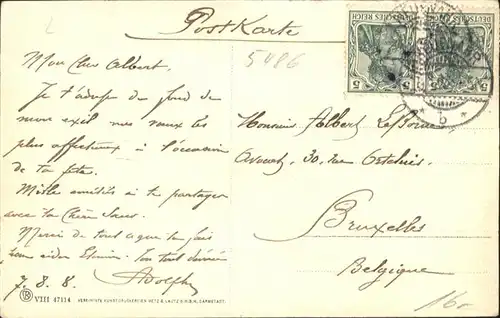 Postkarte
5486
DEUTSCHES REICH
DEUTSCHES REICH
5 5
5 5
Mon cher Albert,
Je t'adresse du fond de
mon exil mes vœux les
plus affectueux à l'occasion
de ta fête.
Mille amitiés à te partager
avec ta Chère Sœur.
Merci de tout ce que tu fais
pour aider Ton tout dévoué
7. 8. 8. Adolphe
Monsieur Albert
Avocat, 30, rue
Bruxelles
Belgique
16.-
VIII 47114 VEREINIGTE KUNSTDRUCKEREIEN METZ & LAUTZ G.M.B.H. DARMSTADT.